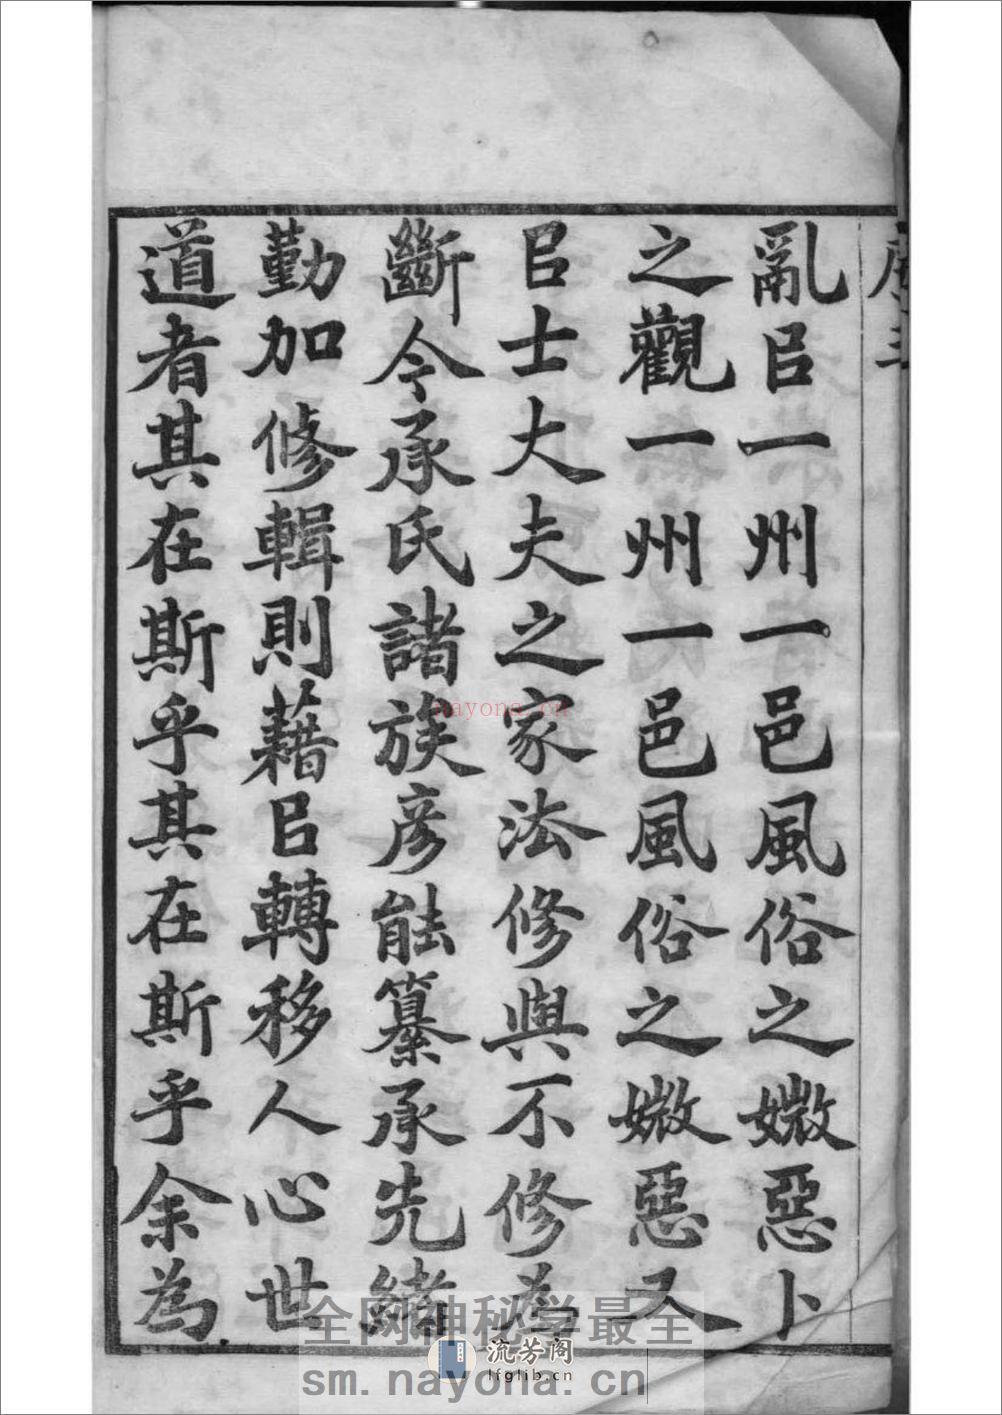 亂㠯一州一邑風俗之媺惡卜
之觀一州一邑風俗之媺惡又
㠯士大夫之家法修與不修為
斷今承氏諸族彥能纂承先緒
勤加修輯則藉㠯轉移人心世
道者其在斯乎其在斯乎余為
nayona.cn
全网神秘学最全
流芳阁
lfglib.cn
sm.nayona.cn